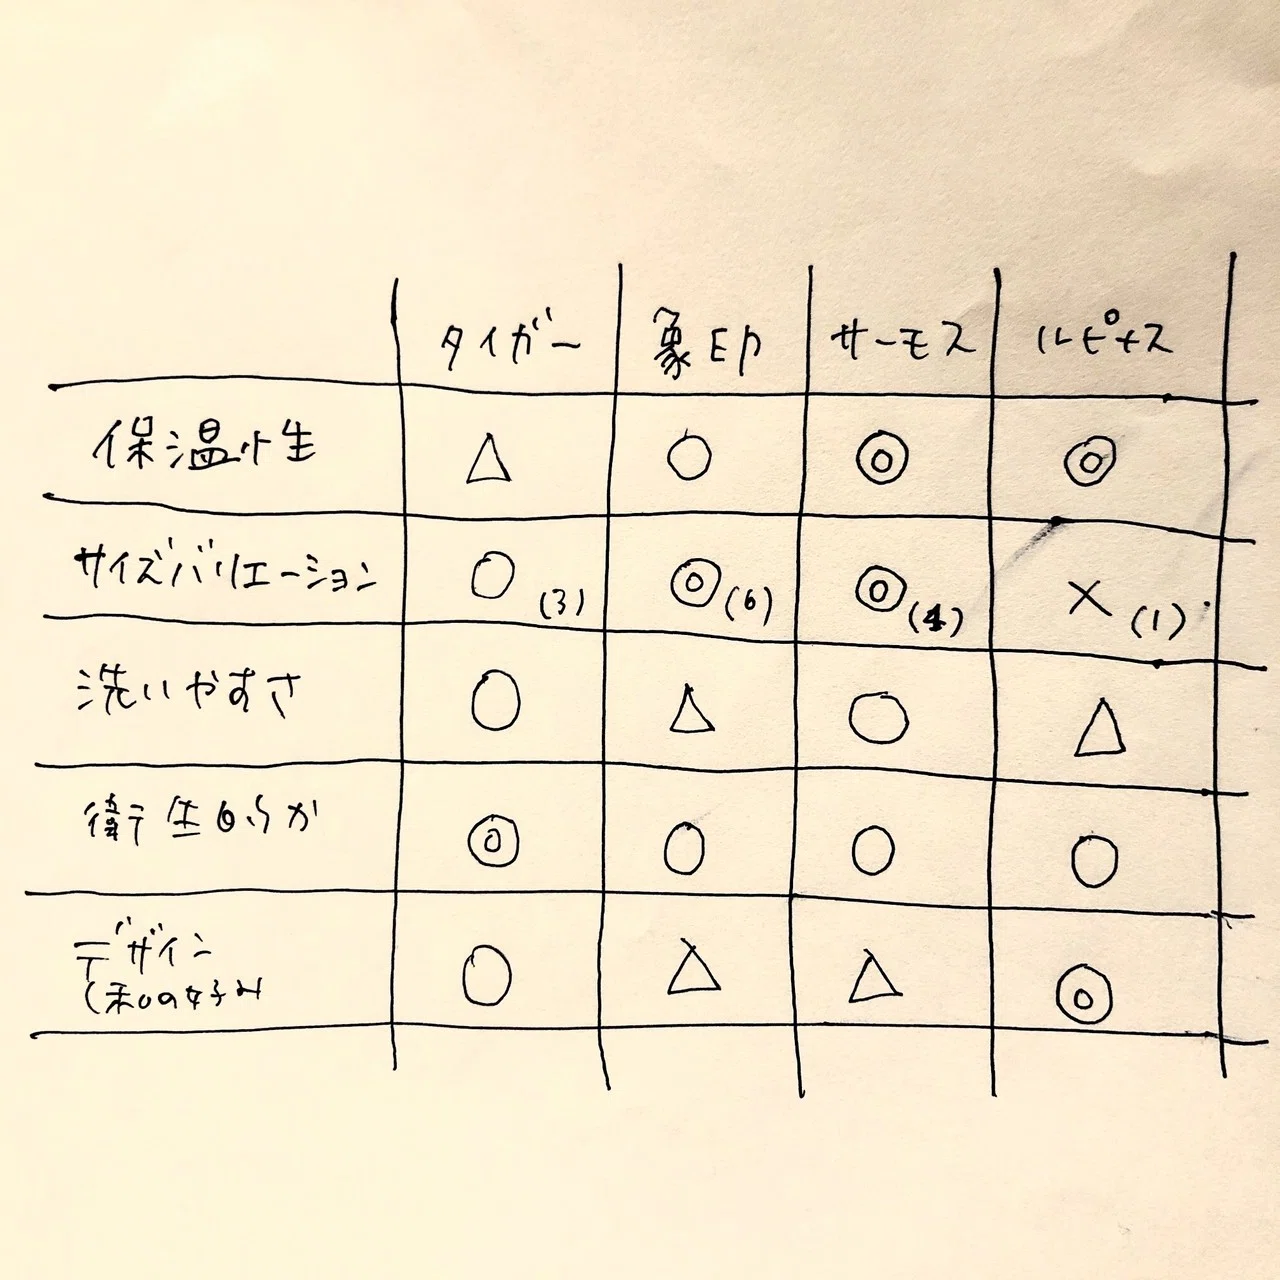 タイガー 象印 サーモス ルピナス
保温性 △ ○ ◎ ◎
サイズバリエーション ○(3) ◎(6) ◎(4) ×(1)
洗いやすさ ○ △ ○ △
衛生的か ◎ ○ ○ ○
デザイン ○ △ △ ◎
(私の好み